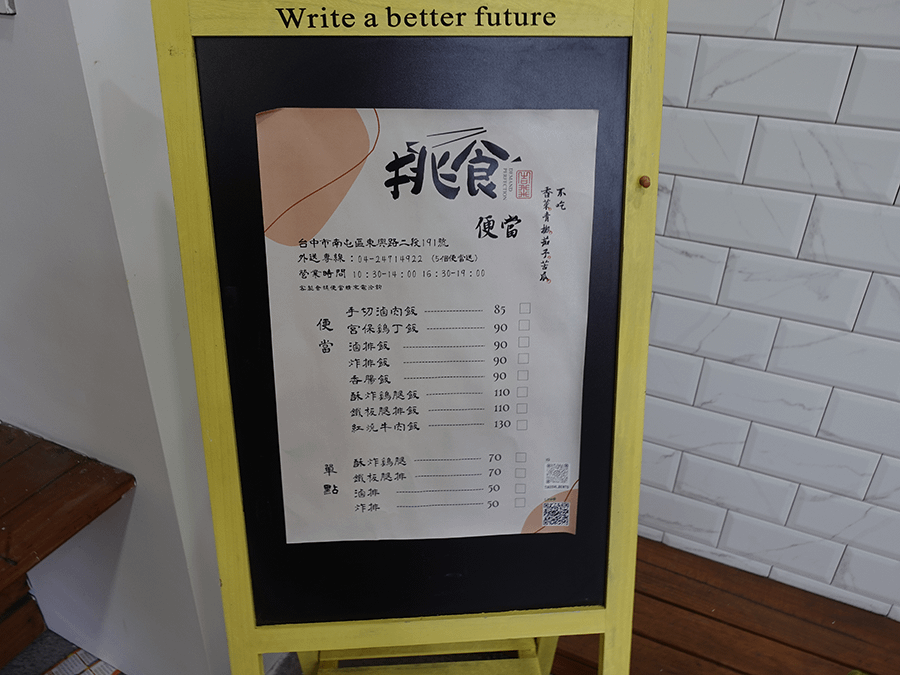 Write a better future
挑食
DEMAND
PERFECTION
便當
不吃
香菜青椒茄子苦瓜
台中市南屯區東興路二段191號
外送專線：04-24714922 (5個便當送)
營業時間 10:30-14:00 16:30-19:00
客製會議便當請來電洽詢
便當
手切滷肉飯 85
宮保鷄丁飯 90
滷排飯 90
炸排飯 90
香腸飯 90
酥炸鷄腿飯 110
鐵板腿排飯 110
紅燒牛肉飯 130
單點
酥炸鷄腿 70
鐵板腿排 70
滷排 50
炸排 50